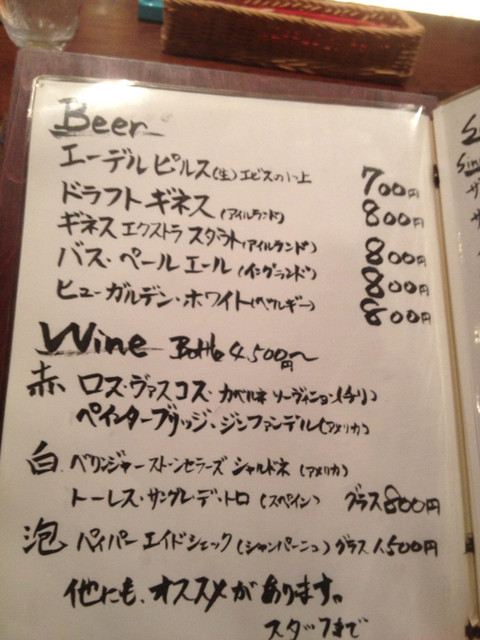 Beer
エーデルピルス(生)エビスの1つ上 700円
ドラフトギネス(アイルランド) 800円
ギネスエクストラスタウト(アイルランド) 800円
バス・ペールエール(イングランド) 800円
ヒューガルデン・ホワイト(ベルギー) 800円
Wine Bottle 4,500円〜
赤 ロス・ヴァスコス・カベルネソーヴィニョン(チリ)
ペインターブリッジ・ジンファンデル(アメリカ)
白 ベリンジャーストーンセラーズ シャルドネ (アメリカ)
トーレス・サングレ・デ・トロ (スペイン) グラス800円
泡 パイパーエイドシェック(シャンパーニュ)グラス1,500円
他にも、オススメがあります。
スタッフまで